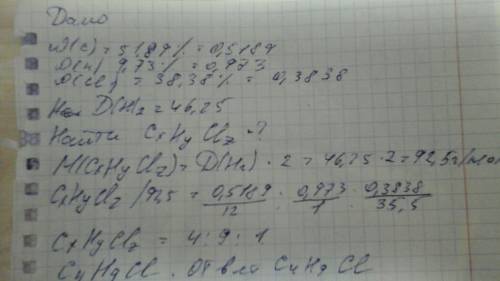 Дано
W(C) = 51,89% = 0,5189
W(H) 9,73% = 0,973
W(Cl) = 38,38% = 0,3838
D(H2) = 46,25
Найти CxHyClz - ?
M(CxHyClz) = D(H2) · 2 = 46,25 · 2 = 92,5 г/мол
CxHyClz / 92,5 = 0,5189/12 : 0,973/1 : 0,3838/35,5
CxHyClz = 4 : 9 : 1
C4H9Cl. Ответ C4H9Cl